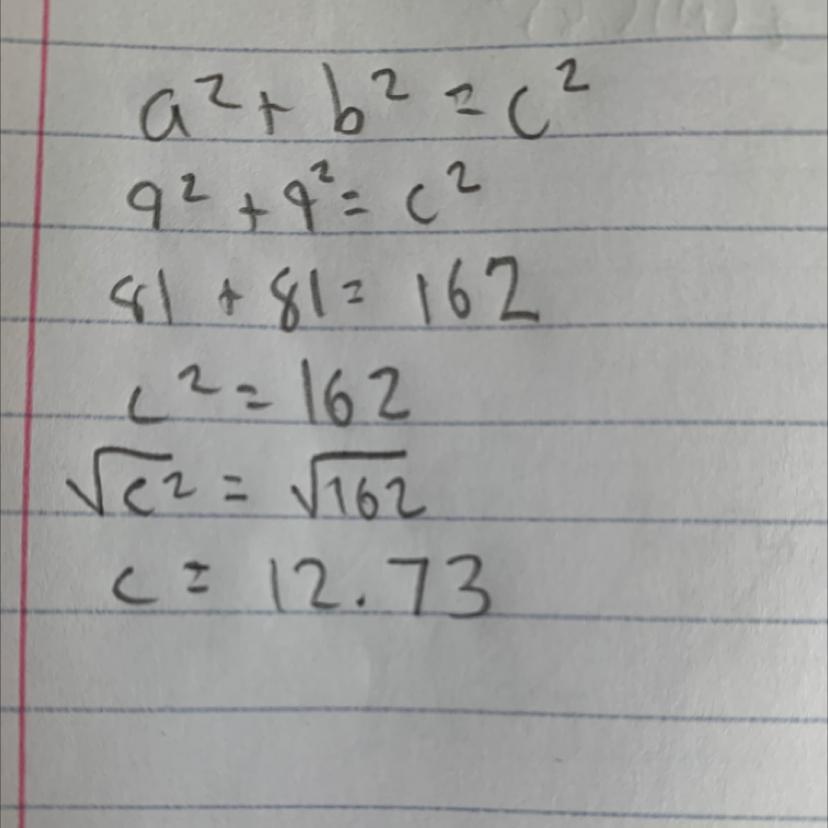 a² + b² = c²
9² + 9² = c²
81 + 81 = 162
c² = 162
√c² = √162
c = 12.73